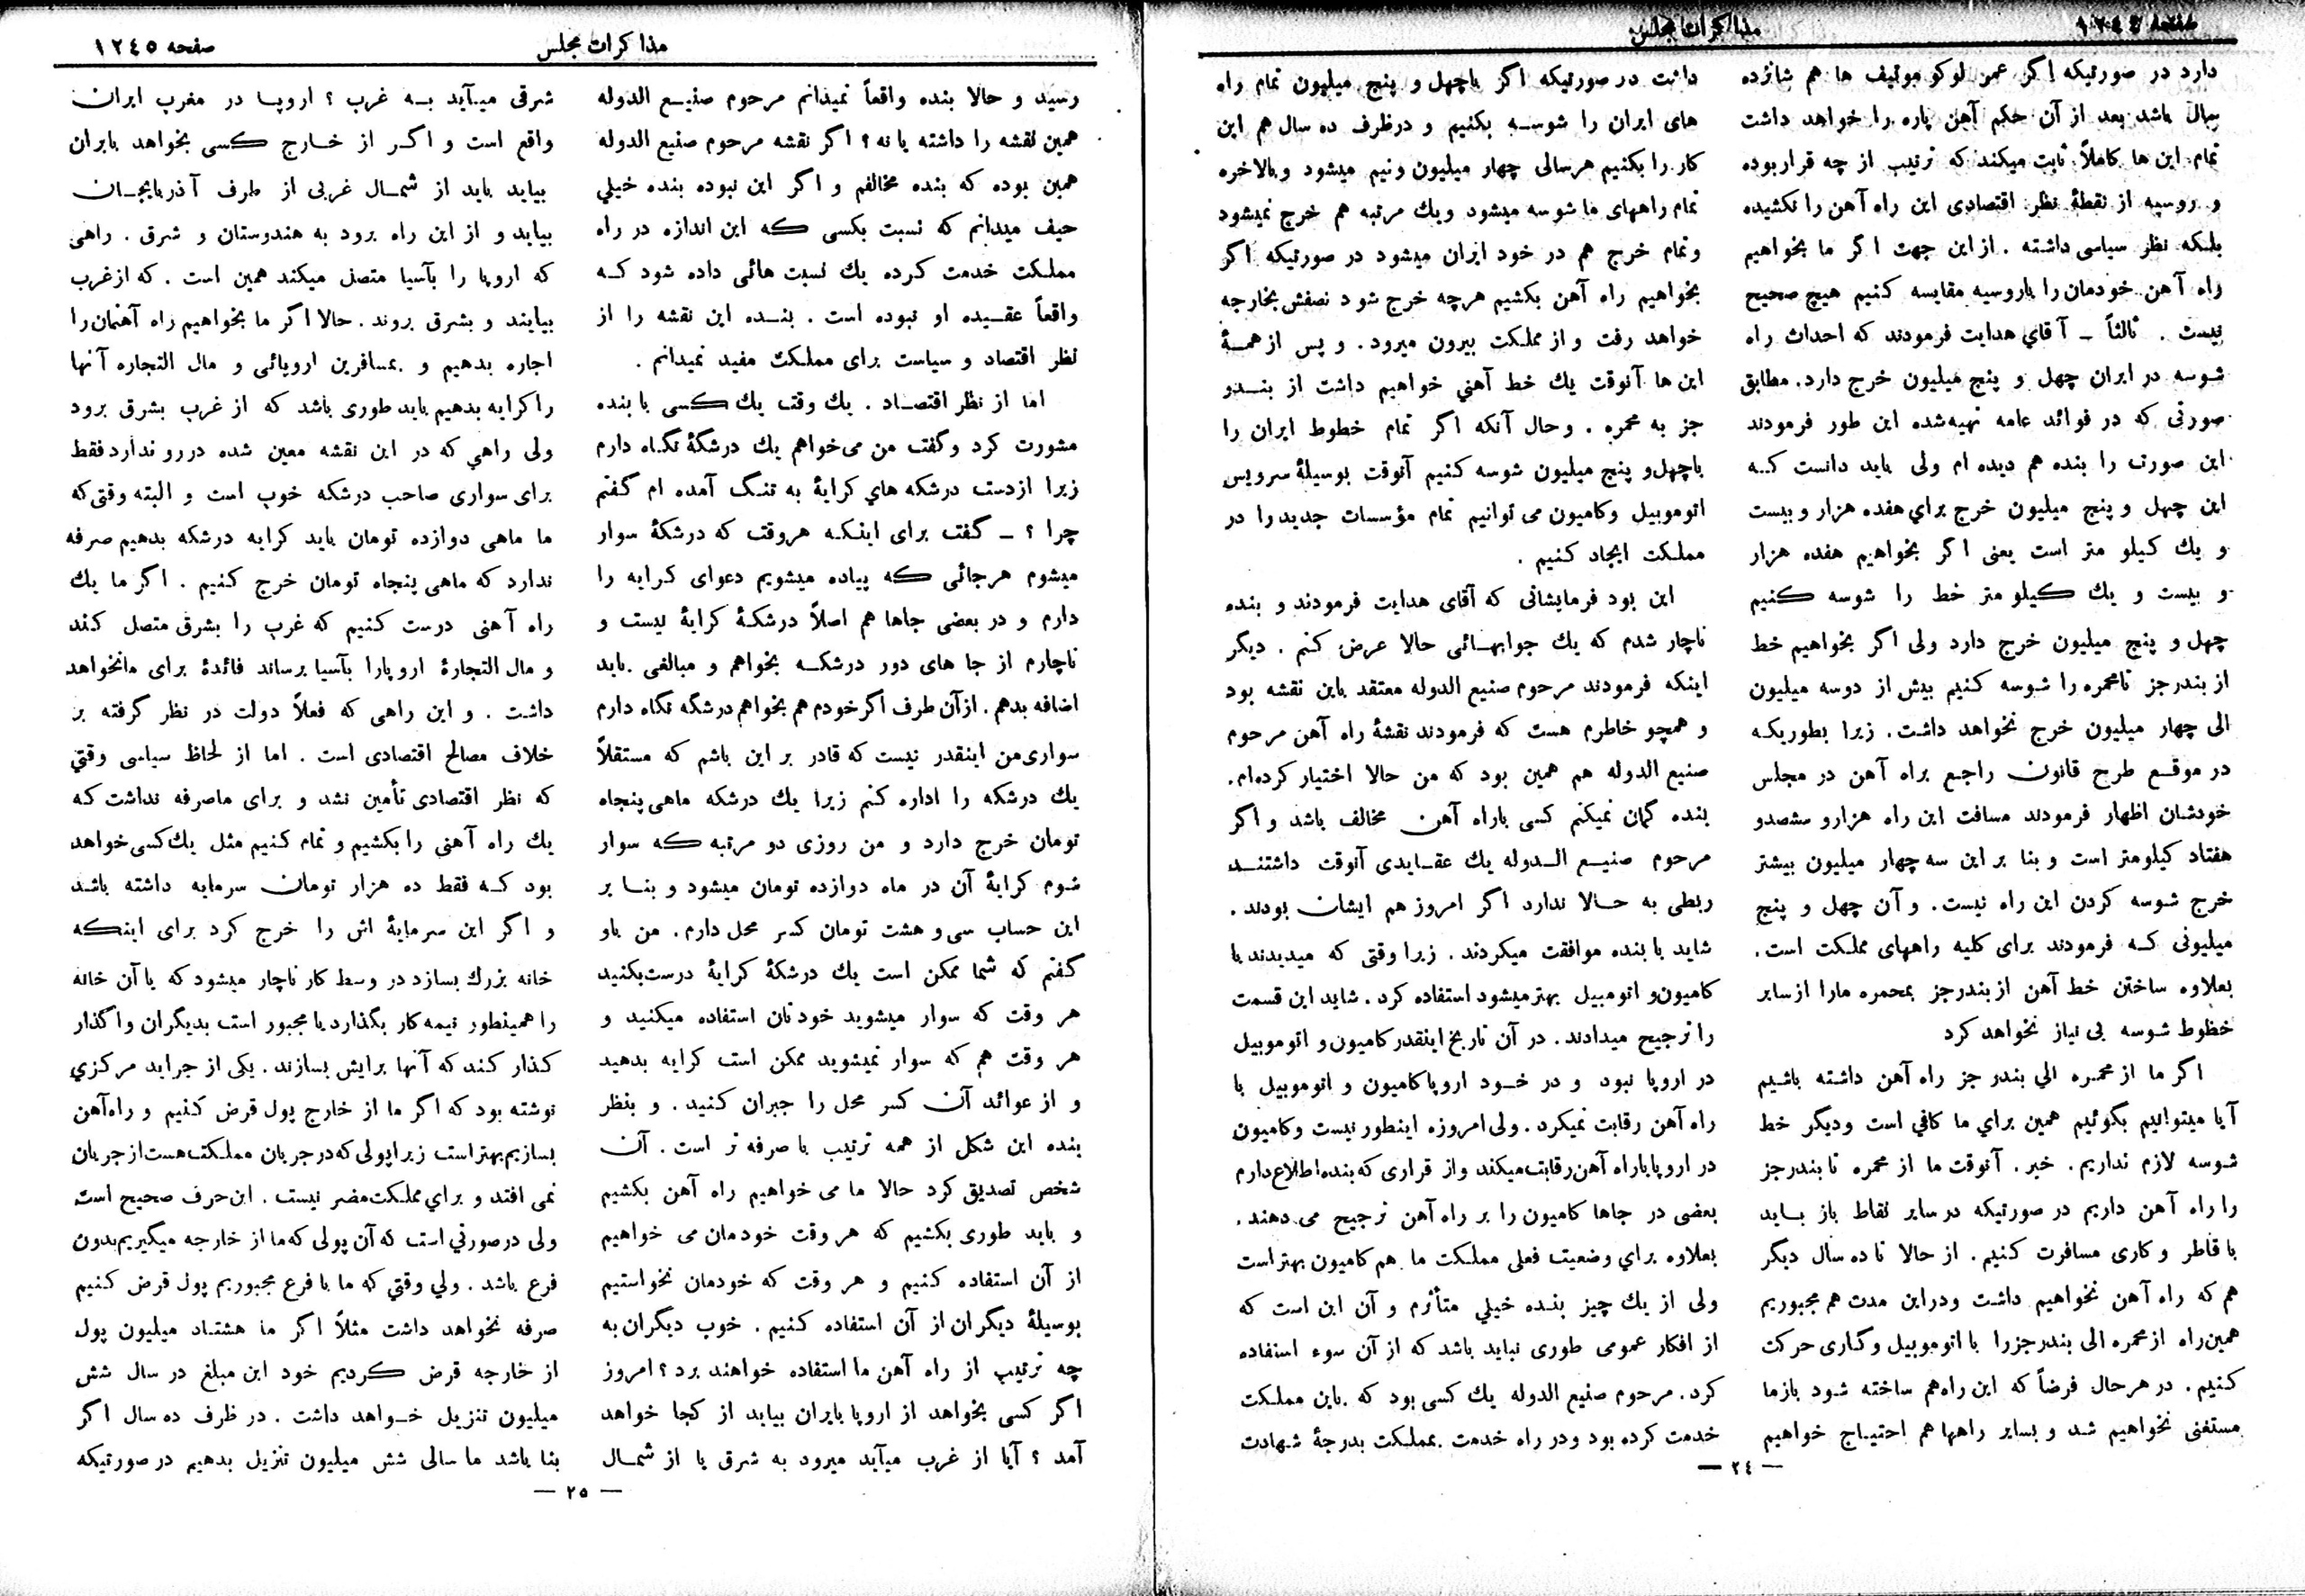 صفحه ١٢٤٤
مذاكرات مجلس
دارد در صورتیکه اگر عمر لوکوموتیف ها هم شانزده
سال باشد بعد از آن حکم آهن پاره را خواهد داشت
تمام این ها کاملاً ثابت میکند که ترتیب از چه قرار بوده
و روسیه از نقطهٔ نظر اقتصادی این راه آهن را نکشیده
بلکه نظر سیاسی داشته . از این جهت اگر ما بخواهیم
راه آهن خودمان را باروسیه مقایسه کنیم هیچ صحیح
نیست . ثالثاً ــ آقای هدایت فرمودند که احداث راه
شوسه در ایران چهل و پنج میلیون خرج دارد. مطابق
صورتی که در فوائد عامه تهیه شده این طور فرمودند
این صورت را بنده هم دیده ام ولی باید دانست که
این چهل و پنج میلیون خرج براي هفده هزار و بیست
و یك کیلو متر است یعنی اگر بخواهیم هفده هزار
و بیست و یك کیلو متر خط را شوسه کنیم
چهل و پنج میلیون خرج دارد ولی اگر بخواهیم خط
از بندر جز تامحمره را شوسه کنیم بیش از دوسه میلیون
الی چهار میلیون خرج نخواهد داشت. زیرا بطوریکه
در موقع طرح قانون راجع براه آهن در مجلس
خودشان اظهار فرمودند مسافت این راه هزار و ششصدو
هفتاد کیلومتر است و بنا بر این سه چهار میلیون بیشتر
خرج شوسه کردن این راه نیست. و آن چهل و پنج
میلیونی که فرمودند برای کلیه راههای مملکت است.
بعلاوه ساختن خط آهن از بندرجز بمحمره مارا از سایر
خطوط شوسه بی نیاز نخواهد کرد
اگر ما از محمره الي بندر جز راه آهن داشته باشیم
آیا میتوانیم بگوئیم همین براي ما کافي است و دیگر خط
شوسه لازم نداریم. خیر. آنوقت ما از محمره تا بندرجز
را راه آهن داریم در صورتیکه در سایر نقاط باز باید
با قاطر و کاری مسافرت کنیم. از حالا تا ده سال دیگر
هم که راه آهن نخواهیم داشت و در این مدت هم مجبوریم
همین راه از محمره الی بندرجز را با اتوموبیل و گاری حرکت
کنیم. در هر حال فرضاً که این راه هم ساخته شود باز ما
مستغنی نخواهیم شد و بسایر راهها هم احتیاج خواهیم
داشت در صورتیکه اگر باچهل و پنج میلیون تمام راه
های ایران را شوسه بکنیم و درظرف ده سال هم این
کار را بکنیم هرسالی چهار میلیون ونیم میشود و بالاخره
تمام راههای ما شوسه میشود و یك مرتبه هم خرج نمیشود
و تمام خرج هم در خود ایران میشود در صورتیکه اگر
بخواهیم راه آهن بکشیم هرچه خرج شود نصفش بخارجه
خواهد رفت و از مملکت بیرون میرود. و پس از همهٔ
این ها آنوقت یك خط آهني خواهیم داشت از بندر
جز به محمره . و حال آنکه اگر تمام خطوط ایران را
باچهل و پنج میلیون شوسه کنیم آنوقت بوسیلهٔ سرویس
اتوموبیل و کامیون می توانیم تمام مؤسسات جدید را در
مملکت ایجاد کنیم .
این بود فرمایشاتی که آقای هدایت فرمودند و بنده
ناچار شدم که یك جوابهائی حالا عرض کنم . دیگر
اینکه فرمودند مرحوم صنیع الدوله معتقد باین نقشه بود
و همچو خاطرم هست که فرمودند نقشهٔ راه آهن مرحوم
صنیع الدوله هم همین بود که من حالا اختیار کرده ام.
بنده گمان نمیکنم کسی باراه آهن مخالف باشد و اگر
مرحوم صنیع الدوله یك عقایدی آنوقت داشتند
ربطی به حالا ندارد اگر امروز هم ایشان بودند .
شاید با بنده موافقت میکردند . زیرا وقتی که میدیدند با
کامیون و اتومبیل بهتر میشود استفاده کرد . شاید این قسمت
را ترجیح میدادند. در آن تاریخ اینقدر کامیون و اتوموبیل
در اروپا نبود و در خود اروپا کامیون و اتوموبیل با
راه آهن رقابت نمیکرد . ولی امروزه اینطور نیست و کامیون
در اروپا باراه آهن رقابت میکند و از قراری که بنده اطلاع دارم
بعضی در جاها کامیون را بر راه آهن ترجیح می دهند.
بعلاوه براي وضعیت فعلی مملکت ما هم کامیون بهتر است
ولی از یك چیز بنده خیلي متأثرم و آن این است که
از افکار عمومی طوری نباید باشد که از آن سوء استفاده
کرد. مرحوم صنیع الدوله یك کسی بود که باین مملکت
خدمت کرده بود و در راه خدمت بمملکت بدرجهٔ شهادت
— ٢٤ —
مذاكرات مجلس
صفحه ١٢٤٥
رسید و حالا بنده واقعاً نمیدانم مرحوم صنیع الدوله
همین نقشه را داشته یا نه ؟ اگر نقشه مرحوم صنیع الدوله
همین بوده که بنده مخالفم و اگر این نبوده بنده خیلي
حیف میدانم که نسبت بکسی که این اندازه در راه
مملکت خدمت کرده یك نسبت هائی داده شود که
واقعاً عقیده او نبوده است . بنده این نقشه را از
نظر اقتصاد و سیاست برای مملکت مفید نمیدانم .
اما از نظر اقتصاد . یك وقت یك کسی با بنده
مشورت کرد و گفت من می خواهم یك درشگهٔ نگاه دارم
زیرا ازدست درشکه هاي کرایهٔ به تنگ آمده ام گفتم
چرا ؟ ــ گفت برای اینکه هروقت که درشکهٔ سوار
میشوم هرجائی که پیاده میشویم دعوای کرایه را
دارم و در بعضی جاها هم اصلاً درشکهٔ کرایهٔ نیست و
ناچارم از جا های دور درشکه بخواهم و مبالغی باید
اضافه بدهم . از آن طرف اگر خودم هم بخواهم درشگه نگاه دارم
سواری من اینقدر نیست که قادر بر این باشم که مستقلاً
یك درشکه را اداره کنم زیرا یك درشکه ماهی پنجاه
تومان خرج دارد و من روزی دو مرتبه که سوار
شوم کرایهٔ آن در ماه دوازده تومان میشود و بنا بر
این حساب سی و هشت تومان کسر محل دارم. من باو
گفتم که شما ممکن است یك درشکهٔ کرایهٔ درست بکنید
هر وقت که سوار میشوید خودتان استفاده میکنید و
هر وقت هم که سوار نمیشوید ممکن است کرایه بدهید
و از عوائد آن کسر محل را جبران کنید . و بنظر
بنده این شکل از همه ترتیب با صرفه تر است . آن
شخص تصدیق کرد حالا ما می خواهیم راه آهن بکشیم
و باید طوری بکشیم که هر وقت خودمان می خواهیم
از آن استفاده کنیم و هر وقت که خودمان نخواستیم
بوسیلهٔ دیگران از آن استفاده کنیم. خوب دیگران به
چه ترتیب از راه آهن ما استفاده خواهند برد ؟ امروز
اگر کسی بخواهد از اروپا بایران بیاید از کجا خواهد
آمد ؟ آیا از غرب میآید میرود به شرق یا از شمال
شرقی میآید به غرب ؟ اروپا در مغرب ایران
واقع است و اگر از خارج کسی بخواهد بایران
بیاید باید از شمال غربی از طرف آذربایجان
بیاید و از این راه برود به هندوستان و شرق . راهی
که اروپا را بآسیا متصل میکند همین است . که از غرب
بیایند و بشرق بروند. حالا اگر ما بخواهیم راه آهنمان را
اجاره بدهیم و بمسافرین اروپائی و مال التجاره آنها
را کرایه بدهیم باید طوری باشد که از غرب بشرق برود
ولی راهي که در این نقشه معین شده دررو ندارد فقط
برای سواری صاحب درشکه خوب است و البته وقتی که
ما ماهی دوازده تومان باید کرایه درشکه بدهیم صرفه
ندارد که ماهی پنجاه تومان خرج کنیم . اگر ما یك
راه آهنی درست کنیم که غرب را بشرق متصل کند
و مال التجارهٔ اروپا را بآسیا برساند فائدهٔ برای ما نخواهد
داشت . و این راهی که فعلاً دولت در نظر گرفته بر
خلاف مصالح اقتصادی است . اما از لحاظ سیاسی وقتي
که نظر اقتصادی تأمین نشد و برای ماصرفه نداشت که
یك راه آهنی را بکشیم و تمام کنیم مثل یك کسی خواهد
بود که فقط ده هزار تومان سرمایه داشته باشد
و اگر این سرمایهٔ اش را خرج کرد برای اینکه
خانه بزرك بسازد در وسط کار ناچار میشود که یا آن خانه
را همینطور نیمه کار بگذارد یا مجبور است بدیگران واگذار
کذار کند که آنها برایش بسازند. یکی از جراید مرکزي
نوشته بود که اگر ما از خارج پول قرض کنیم و راه آهن
بسازیم بهتر است زیرا پولی که در جریان مملکت هست از جریان
نمی افتد و براي مملکت مضر نیست . این حرف صحیح است
ولی در صورتي است که آن پولی که ما از خارجه میگیریم بدون
فرع باشد . ولي وقتي که ما با فرع مجبوریم پول قرض کنیم
صرفه نخواهد داشت مثلاً اگر ما هشتاد میلیون پول
از خارجه قرض کردیم خود این مبلغ در سال شش
میلیون تنزیل خواهد داشت . در ظرف ده سال اگر
بنا باشد ما سالی شش میلیون تنزیل بدهیم در صورتیکه
— ٢٥ —